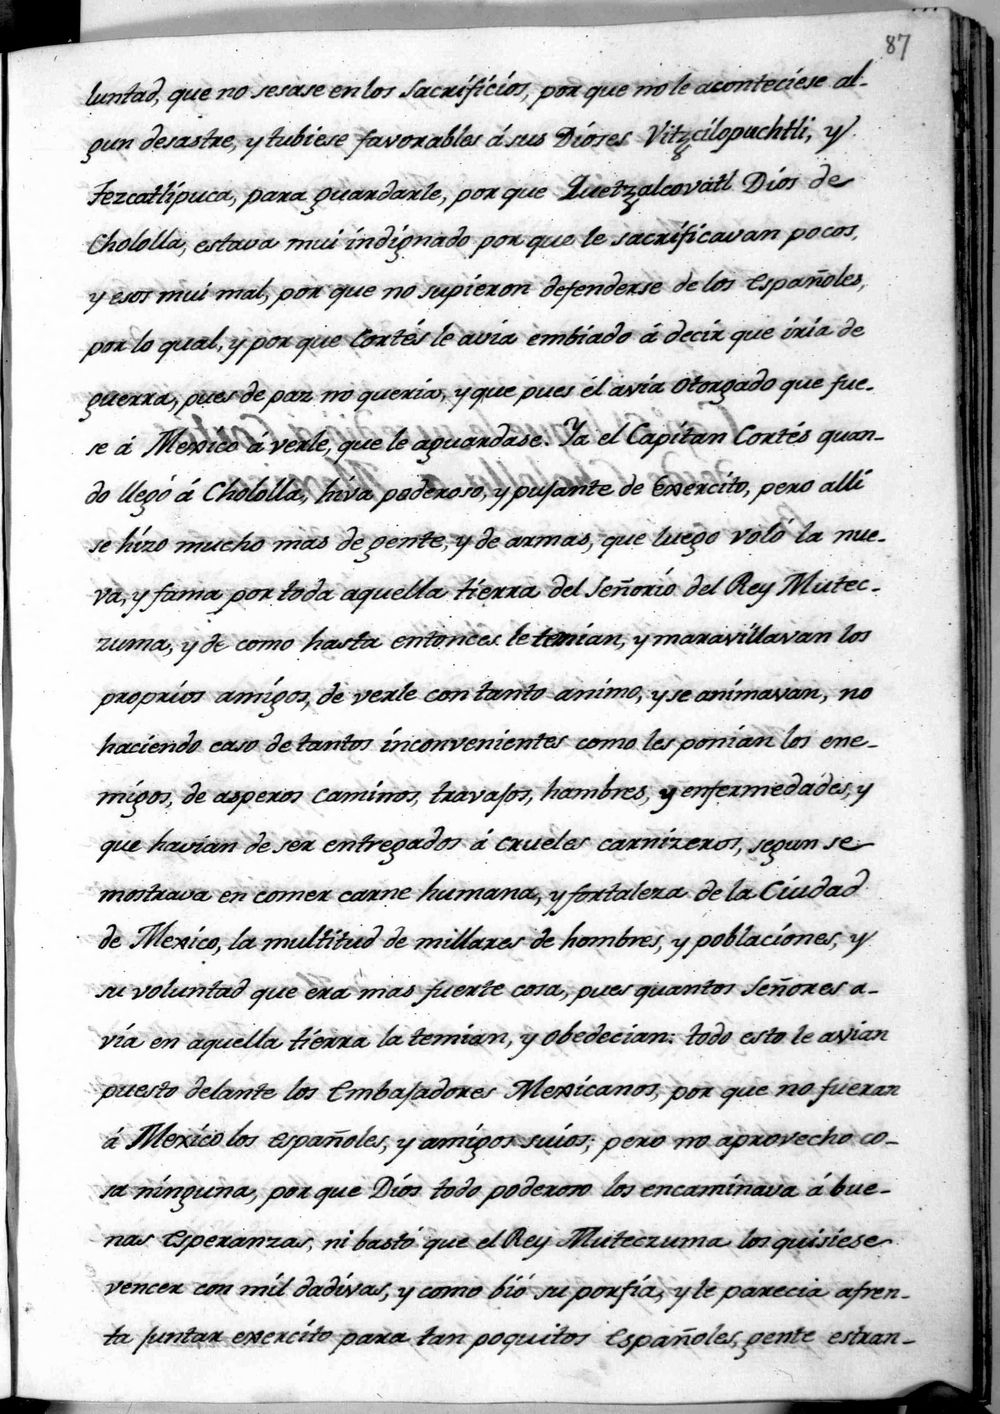 87
luntad, que no sesase en los Sacrificios, por que no le aconteciese al-
gun desastre, y tubiese favorables á sus Dioses Vitzcilopuchtli, y
Tezcatlipuca, para guardarle, por que Quetzalcovatl Dios de
Chololla, estava mui indignado por que le sacrificavan pocos,
y esos mui mal, por que no supieron defenderse de los Españoles,
por lo qual, y por que Cortés le avia embiado á decir que iria de
guerra, pues de paz no queria, y que pues él avia otorgado que fue-
se á Mexico á verle, que le aguardase. Ya el Capitan Cortés quan-
do llegó á Chololla, hiva poderoso, y pujante de Exercito, pero alli
se hizo mucho mas de gente, y de armas, que luego voló la nue-
va, y fama por toda aquella tierra del Señorio del Rey Mutec-
zuma, y de como hasta entonces le temian, y maravillavan los
proprios amigos, de verle con tanto animo, y se animavan, no
haciendo caso de tantos inconvenientes como les ponian los ene-
migos, de asperos caminos, travajos, hambres, y enfermedades, y
que havian de ser entregados á crueles carnizeros, segun se
mostrava en comer carne humana, y fortaleza de la Ciudad
de Mexico, la multitud de millares de hombres, y poblaciones, y
su voluntad que era mas fuerte cosa, pues quantos Señores a-
via en aquella tierra la temian, y obedecian: todo esto le avian
puesto delante los Embajadores Mexicanos, por que no fueran
á Mexico los Españoles, y amigos suios; pero no aprovecho co-
sa ninguna, por que Dios todo poderoso los encaminava á bue-
nas Esperanzas, ni bastó que el Rey Muteczuma los quisiese
vencer con mil dadivas, y como bió su porfia, y le parecia afren-
ta juntar exercito para tan poquitos Españoles, gente estran-